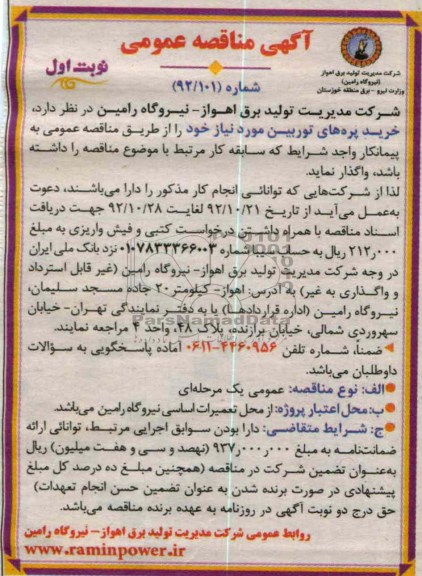 آگهی مناقصه عمومی
نوبت اول
شماره (۹۲/۱۰۱)
شرکت مدیریت تولید برق اهواز
(نیروگاه رامین)
وزارت نیرو - برق منطقه خوزستان
شرکت مدیریت تولید برق اهواز- نیروگاه رامین در نظر دارد،
خرید پره‌های توربین مورد نیاز خود را از طریق مناقصه عمومی به
پیمانکار واجد شرایط که سابقه کار مرتبط با موضوع مناقصه را داشته
باشد، واگذار نماید.
لذا از شرکت‌هایی که توانائی انجام کار مذکور را دارا می‌باشند، دعوت
به‌عمل می‌آید از تاریخ ۹۲/۱۰/۲۱ لغایت ۹۲/۱۰/۲۸ جهت دریافت
اسناد مناقصه با همراه داشتن درخواست کتبی و فیش واریزی به مبلغ
۲۱۲٫۰۰۰ ریال به حساب سیبا شماره ۰۱۰۷۸۳۳۳۶۶۰۰۳ نزد بانک ملی ایران
در وجه شرکت مدیریت تولید برق اهواز- نیروگاه رامین (غیر قابل استرداد
و واگذاری به غیر) به آدرس: اهواز- کیلومتر ۲۰ جاده مسجد سلیمان،
نیروگاه رامین (اداره قراردادها) یا به دفتر نمایندگی تهران- خیابان
سهروردی شمالی، خیابان برازنده، پلاک ۴۸، واحد ۴ مراجعه نمایند.
ضمناً، شماره تلفن ۴۴۶۰۹۵۶-۰۶۱۱ آماده پاسخگویی به سؤالات
داوطلبان می‌باشد.
الف: نوع مناقصه: عمومی یک مرحله‌ای
ب: محل اعتبار پروژه: از محل تعمیرات اساسی نیروگاه رامین می‌باشد.
ج: شرایط متقاضی: دارا بودن سوابق اجرایی مرتبط، توانائی ارائه
ضمانت‌نامه به مبلغ ۹۳۷٫۰۰۰٫۰۰۰ (نهصد و سی و هفت میلیون) ریال
به‌عنوان تضمین شرکت در مناقصه (همچنین مبلغ ده درصد کل مبلغ
پیشنهادی در صورت برنده شدن به عنوان تضمین حسن انجام تعهدات)
حق درج دو نوبت آگهی در روزنامه به عهده برنده مناقصه می‌باشد.
روابط عمومی شرکت مدیریت تولید برق اهواز- نیروگاه رامین
www.raminpower.ir